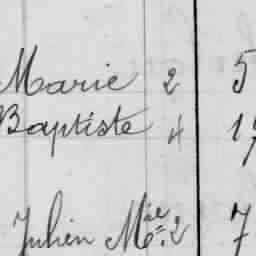 Marie 2 5
Baptiste 4
Julien Mie. 2 7